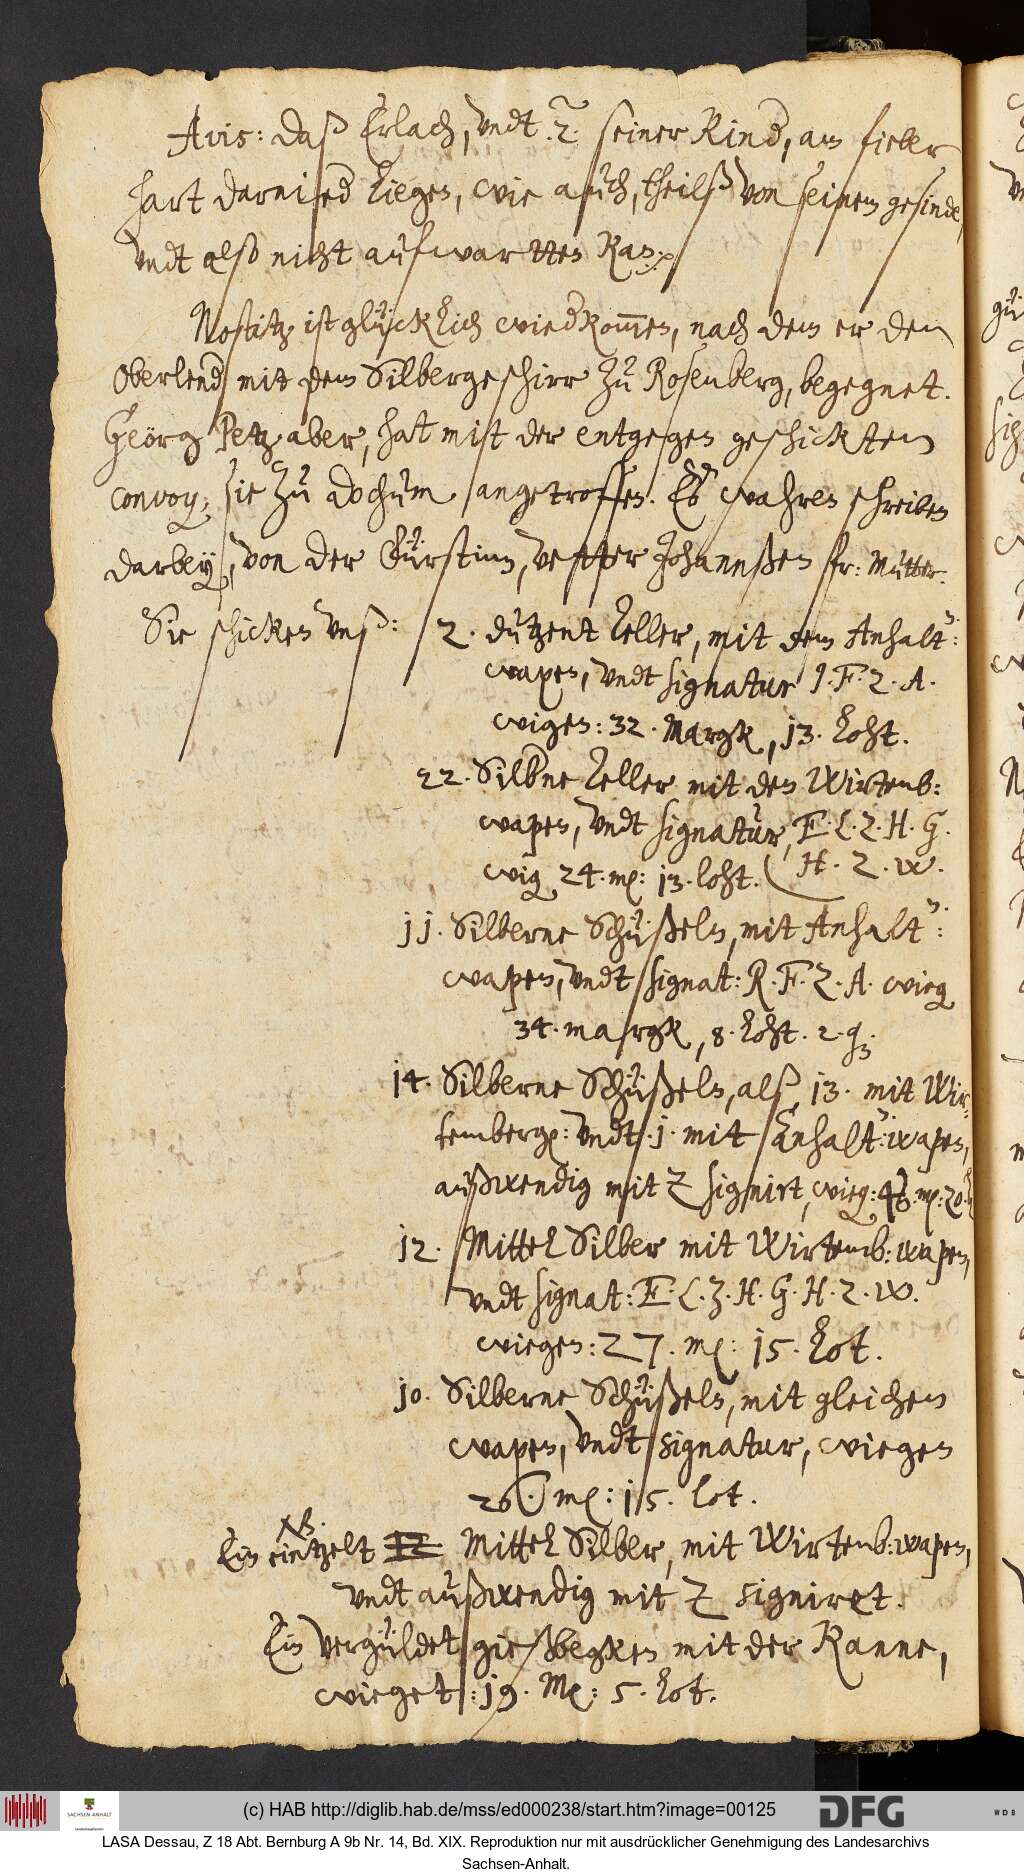 Avis: daß Erlach, vndt .2. seiner Kind, am fieber
hart darnied liegen, wie auch, theilß von seinem gesinde,
vndt also nicht aufwartten Kan.
Nostitz ist glücklich wied kommen, nach dem er den
Oberlend mit dem Silbergeschirr zu Rosenberg, begegnet.
Geörg Petz aber, hat mist der entgegen geschickten
convoy, sie zu Bochum angetroffen. Es wahren schreiben
darbey, von der Fürstinn, vester Johannßen fr: Mutter.
Sie schicken vnß: 2. dutzent Teller, mit dem Anhalt:
wapen, vndt signatur J. F. Z. A.
wigen: 32. Margk, 13. Loht.
22. Silbne Teller mit dem Wirtemb:
wapen, vndt signatur, E. L. Z. H. G.
H. Z. W.
wig 24. mk: 13. loht.
11. Silberne Schüßeln, mit Anhalt:
wapen, vndt signat: R. F. Z. A. wieg
34. margk, 8. Loht. 2. q.
14. Silberne Schüßeln, alß, 13. mit Wir-
tembergk: vndt .1. mit Anhalt: wapen,
außwendig mit Z signirt, wieg: mk: 20.
12. Mittel Silber mit Wirtemb: wapen,
vndt signat: E. L. Z. H. G. H. Z. W.
wiegen: 27. mk: 15. Lot.
10. Silberne Schüßeln, mit gleichem
wapen, vndt signatur, wiegen
26. mk: 15. lot.
NB.
Ein eintzelt 12 Mittel Silber, mit Wirtemb: wapen,
vndt außwendig mit Z signiret.
Ein vergüldet gießbegken mit der Kanne,
wieget: 19. Mk: 5. Lot.
(c) HAB http://diglib.hab.de/mss/ed000238/start.htm?image=00125
SACHSEN-ANHALT
DFG
WDB
LASA Dessau, Z 18 Abt. Bernburg A 9b Nr. 14, Bd. XIX. Reproduktion nur mit ausdrücklicher Genehmigung des Landesarchivs
Sachsen-Anhalt.